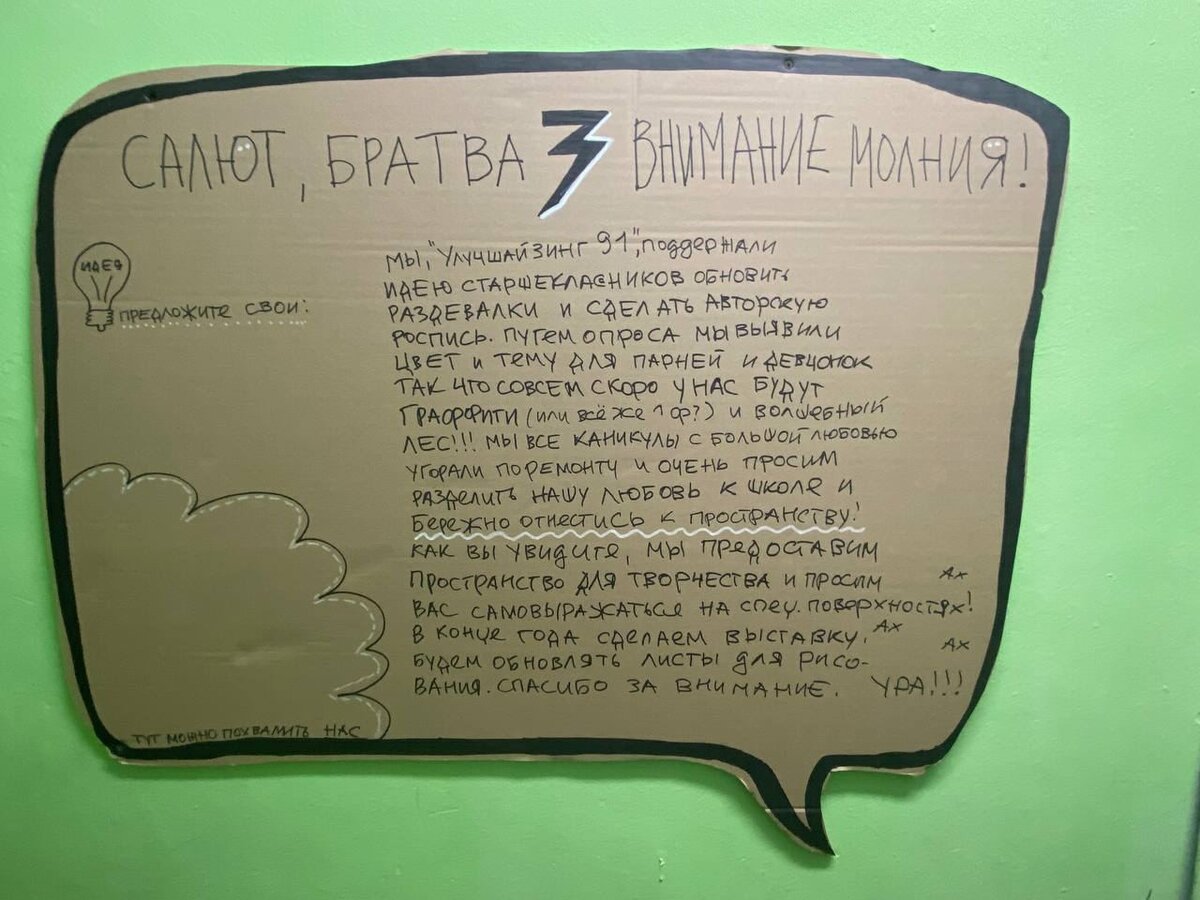 САЛЮТ, БРАТВА ВНИМАНИЕ МОЛНИЯ!
ИДЕЯ
ПРЕДЛОЖИТЕ СВОИ:
МЫ, "УЛУЧШАЙЗИНГ 91", ПОДДЕРЖАЛИ
ИДЕЮ СТАРШЕКЛАСНИКОВ ОБНОВИТЬ
РАЗДЕВАЛКИ И СДЕЛАТЬ АВТОРСКУЮ
РОСПИСЬ. ПУТЕМ ОПРОСА МЫ ВЫЯВИЛИ
ЦВЕТ И ТЕМУ ДЛЯ ПАРНЕЙ И ДЕВЧОНОК
ТАК ЧТО СОВСЕМ СКОРО У НАС БУДУТ
ГРАФФИТИ (ИЛИ ВСЁ ЖЕ 1 Ф?) И ВОЛШЕБНЫЙ
ЛЕС!!! МЫ ВСЕ КАНИКУЛЫ С БОЛЬШОЙ ЛЮБОВЬЮ
УГОРАЛИ ПО РЕМОНТУ И ОЧЕНЬ ПРОСИМ
РАЗДЕЛИТЬ НАШУ ЛЮБОВЬ К ШКОЛЕ И
БЕРЕЖНО ОТНЕСТИСЬ К ПРОСТРАНСТВУ!
КАК ВЫ УВИДИТЕ, МЫ ПРЕДОСТАВИМ
ПРОСТРАНСТВО ДЛЯ ТВОРЧЕСТВА И ПРОСИМ
ВАС САМОВЫРАЖАТЬСЯ НА СПЕЦ. ПОВЕРХНОСТЯХ!
В КОНЦЕ ГОДА СДЕЛАЕМ ВЫСТАВКУ.
БУДЕМ ОБНОВЛЯТЬ ЛИСТЫ ДЛЯ РИСО-
ВАНИЯ. СПАСИБО ЗА ВНИМАНИЕ. УРА!!!
АХ
АХ
АХ
ТУТ МОЖНО ПОХВАЛИТЬ НАС